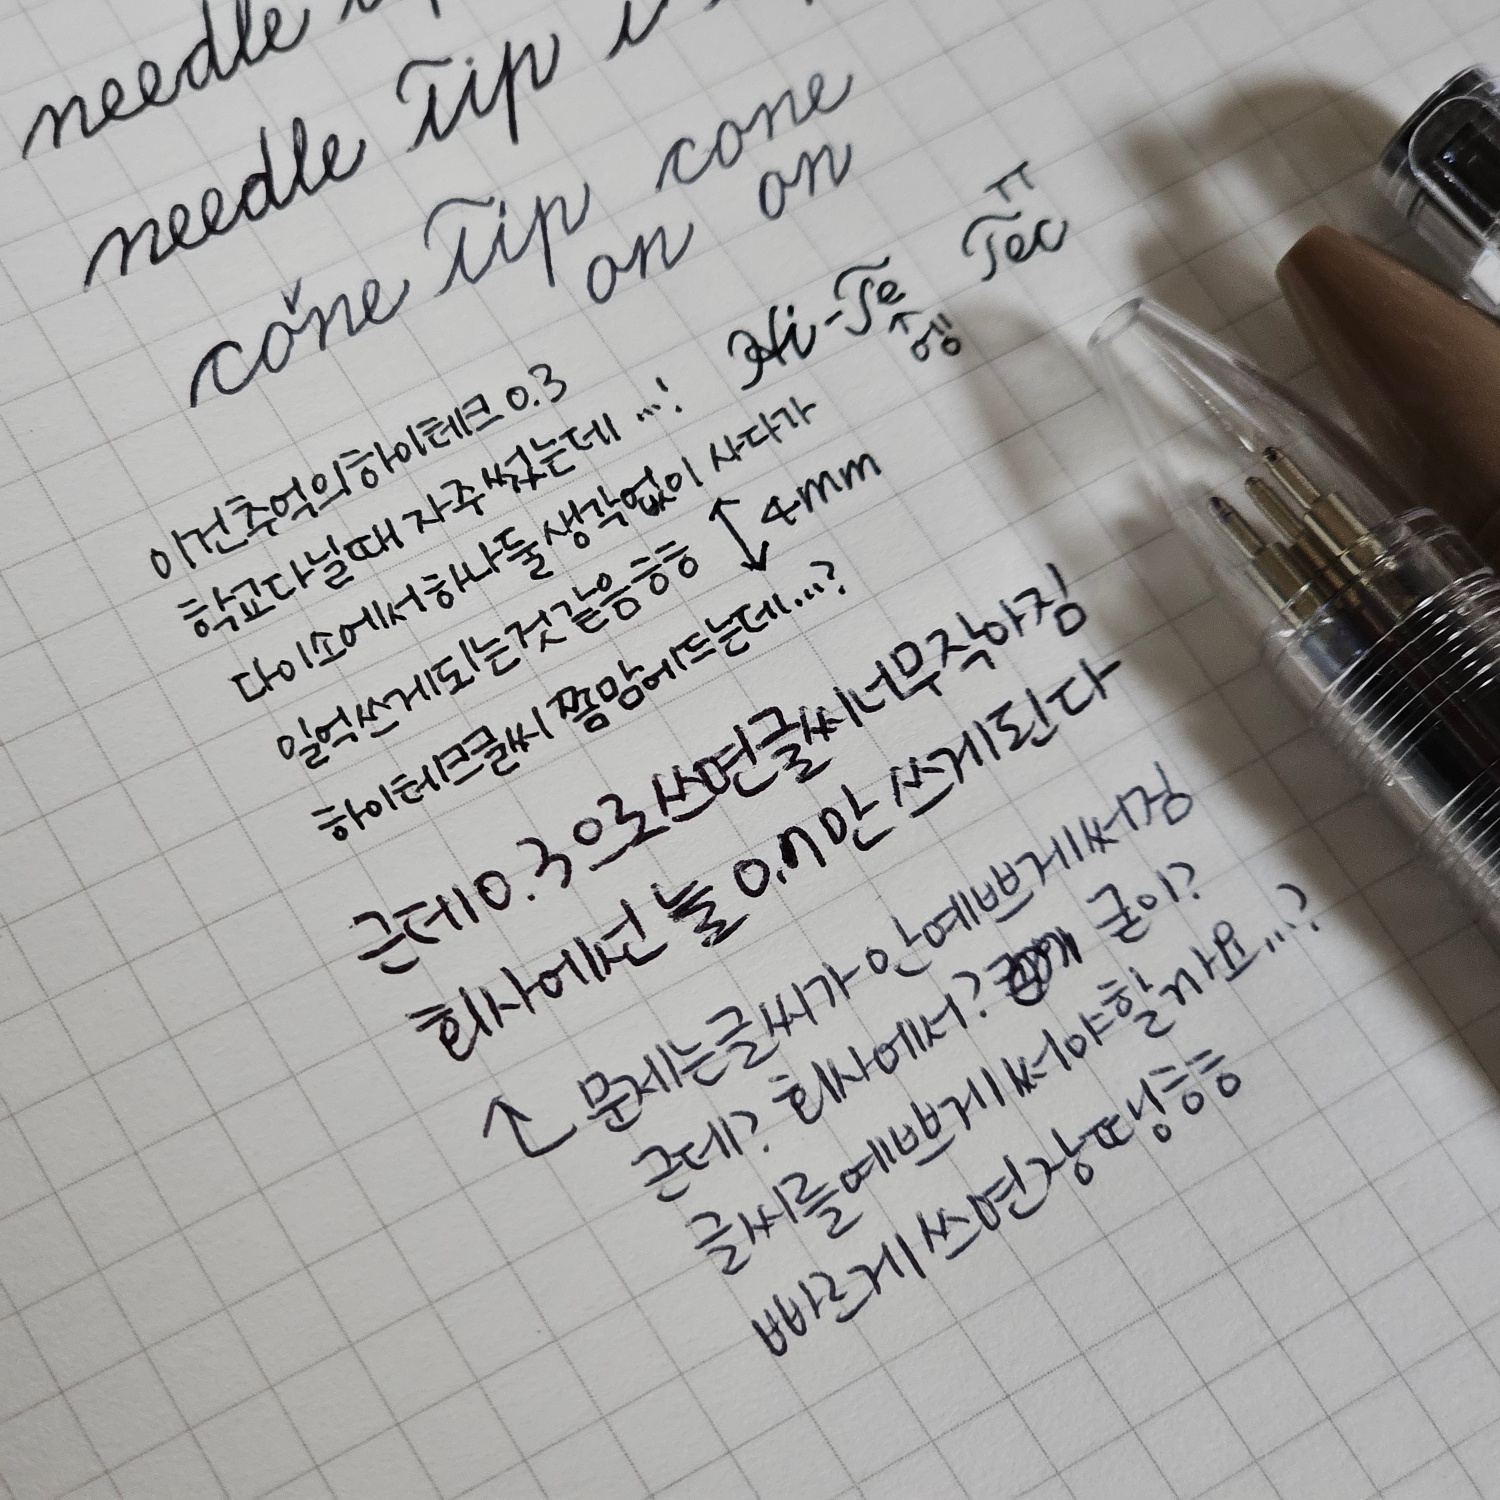 needle
needle Tip
cone Tip cone
on on
Hi-Te Tec
ㅠ
↑엥
이건 추억의 하이테크 0.3
학교다닐때 자주 썼는데...!
다이소에서 하나둘 생각없이 사다가
일억쓰게되는것같음ㅎㅎ
↕ 4mm
하이테크글씨 쫌맘에드는데...?
근데 0.3으로쓰면글씨너무작아짐
회사에선 늘 0.7만 쓰게된다
↑ 문제는글씨가 안예쁘게써짐
근데? 회사에서? 굳이?
글씨를예쁘게써야할까요...?
빠르게쓰면장땡ㅎㅎ